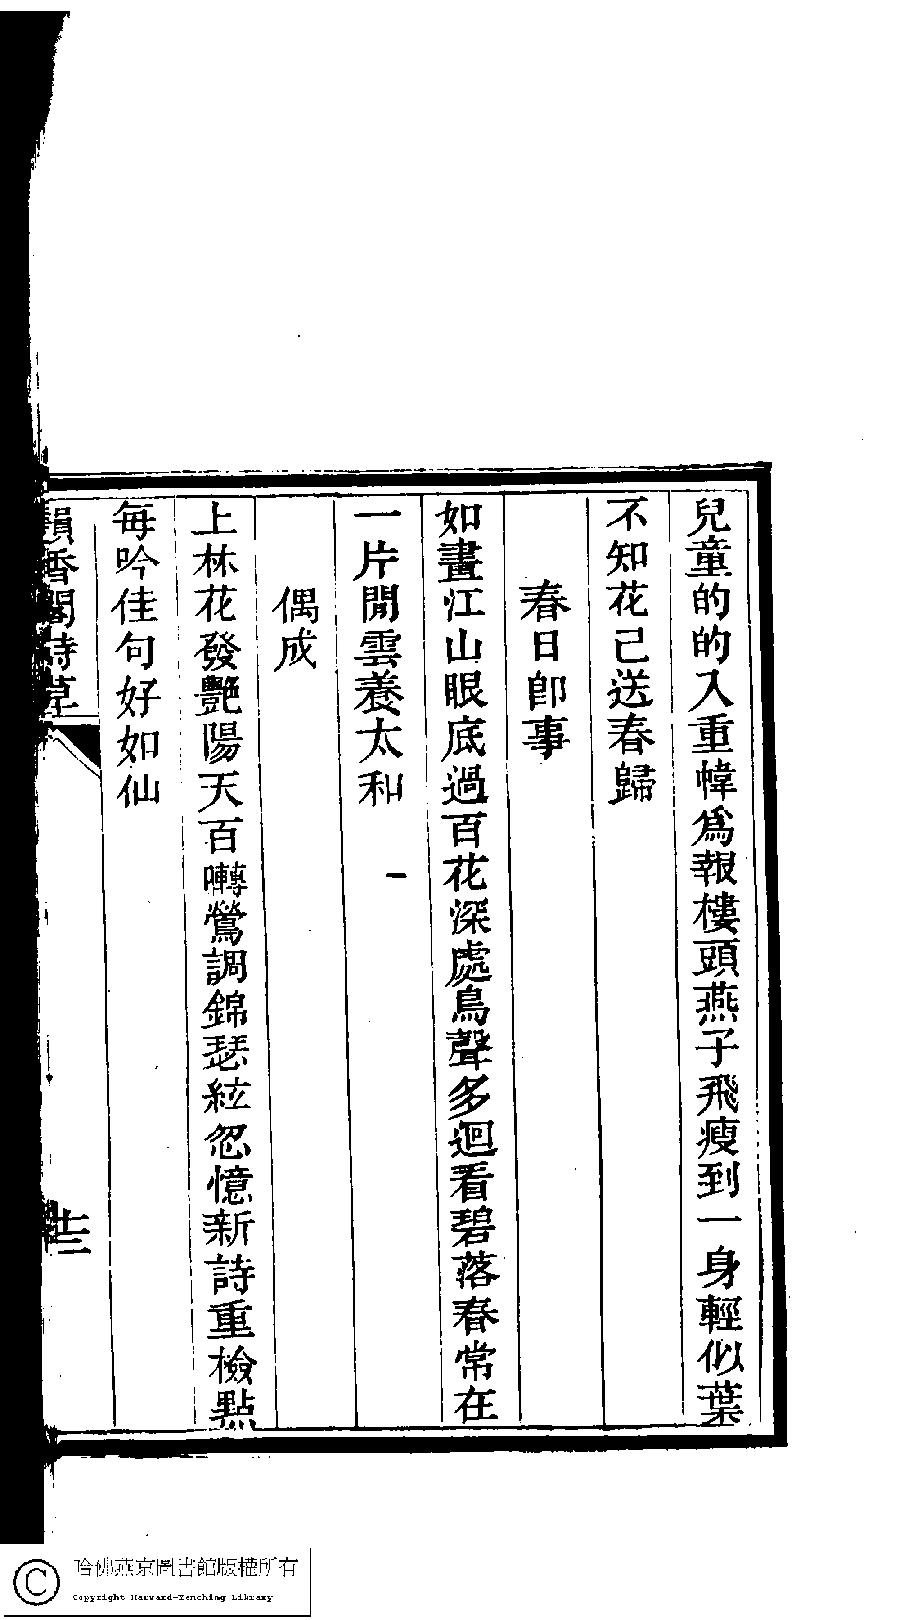 兒童的的入重幃爲報樓頭燕子飛瘦到一身輕似葉
不知花已送春歸
春日卽事
如畫江山眼底過百花深處鳥聲多迴看碧落春常在
一片閒雲養太和
偶成
上林花發艷陽天百囀鶯調錦瑟絃忽憶新詩重檢點
每吟佳句好如仙
韻香閣詩草
十三
哈佛燕京圖書館版權所有
Copyright Harvard-Yenching Library